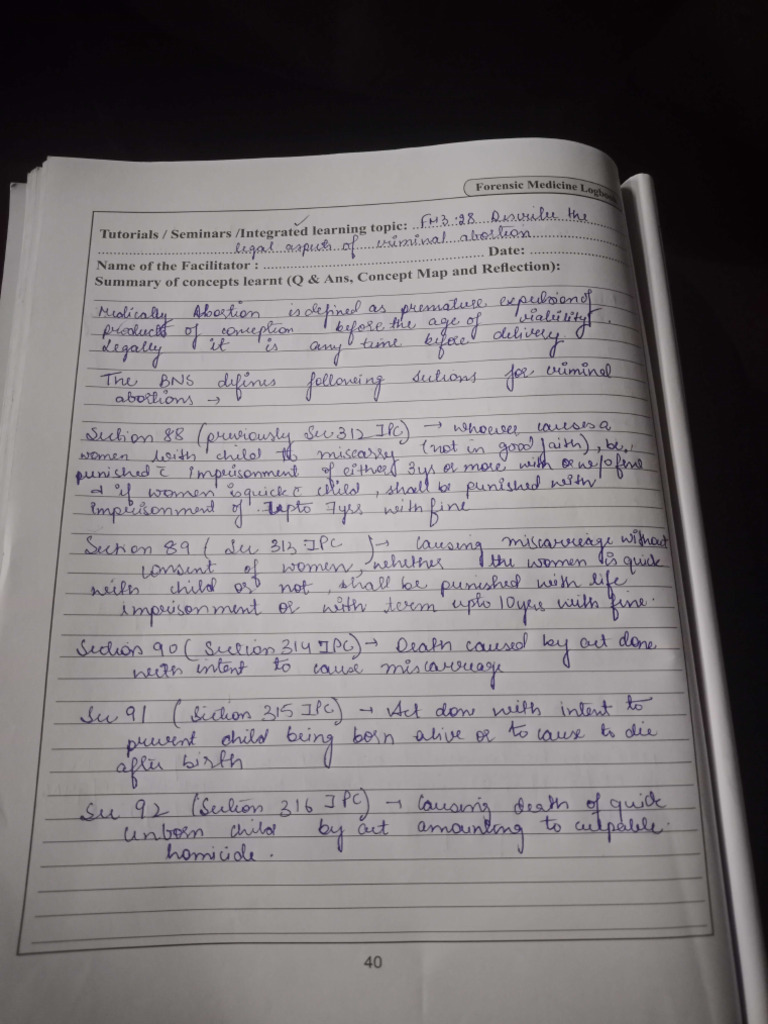 Forensic Medicine Logbo
Tutorials / Seminars /Integrated learning topic: FM3.28 Describe the
legal aspects of criminal abortion Date:
Name of the Facilitator :
Summary of concepts learnt (Q & Ans, Concept Map and Reflection):
Medically Abortion is defined as premature expulsion of
products of conception before the age of viability.
Legally it is any time before delivery
The BNS defines following sections for criminal
abortions →
Section 88 (previously Sec 312 IPC) → whoever causes a
women with child to miscarry (not in good faith), be
punished c̄ imprisonment of either 3yrs or more with or w/o fine
& if women is quick c̄ child, shall be punished with
imprisonment of upto 7yrs with fine
Section 89 (Sec 313 IPC) → Causing miscarreage without
consent of women, whether the women is quick
with child or not, shall be punished with life
imprisonment or with term upto 10yrs with fine.
Section 90 (Section 314 IPC) → Death caused by act done
with intent to cause miscarreage
Sec 91 (Section 315 IPC) → Act done with intent to
prevent child being born alive or to cause to die
after birth
Sec 92 (Section 316 IPC) → Causing death of quick
unborn child by act amounting to culpable
homicide.
40